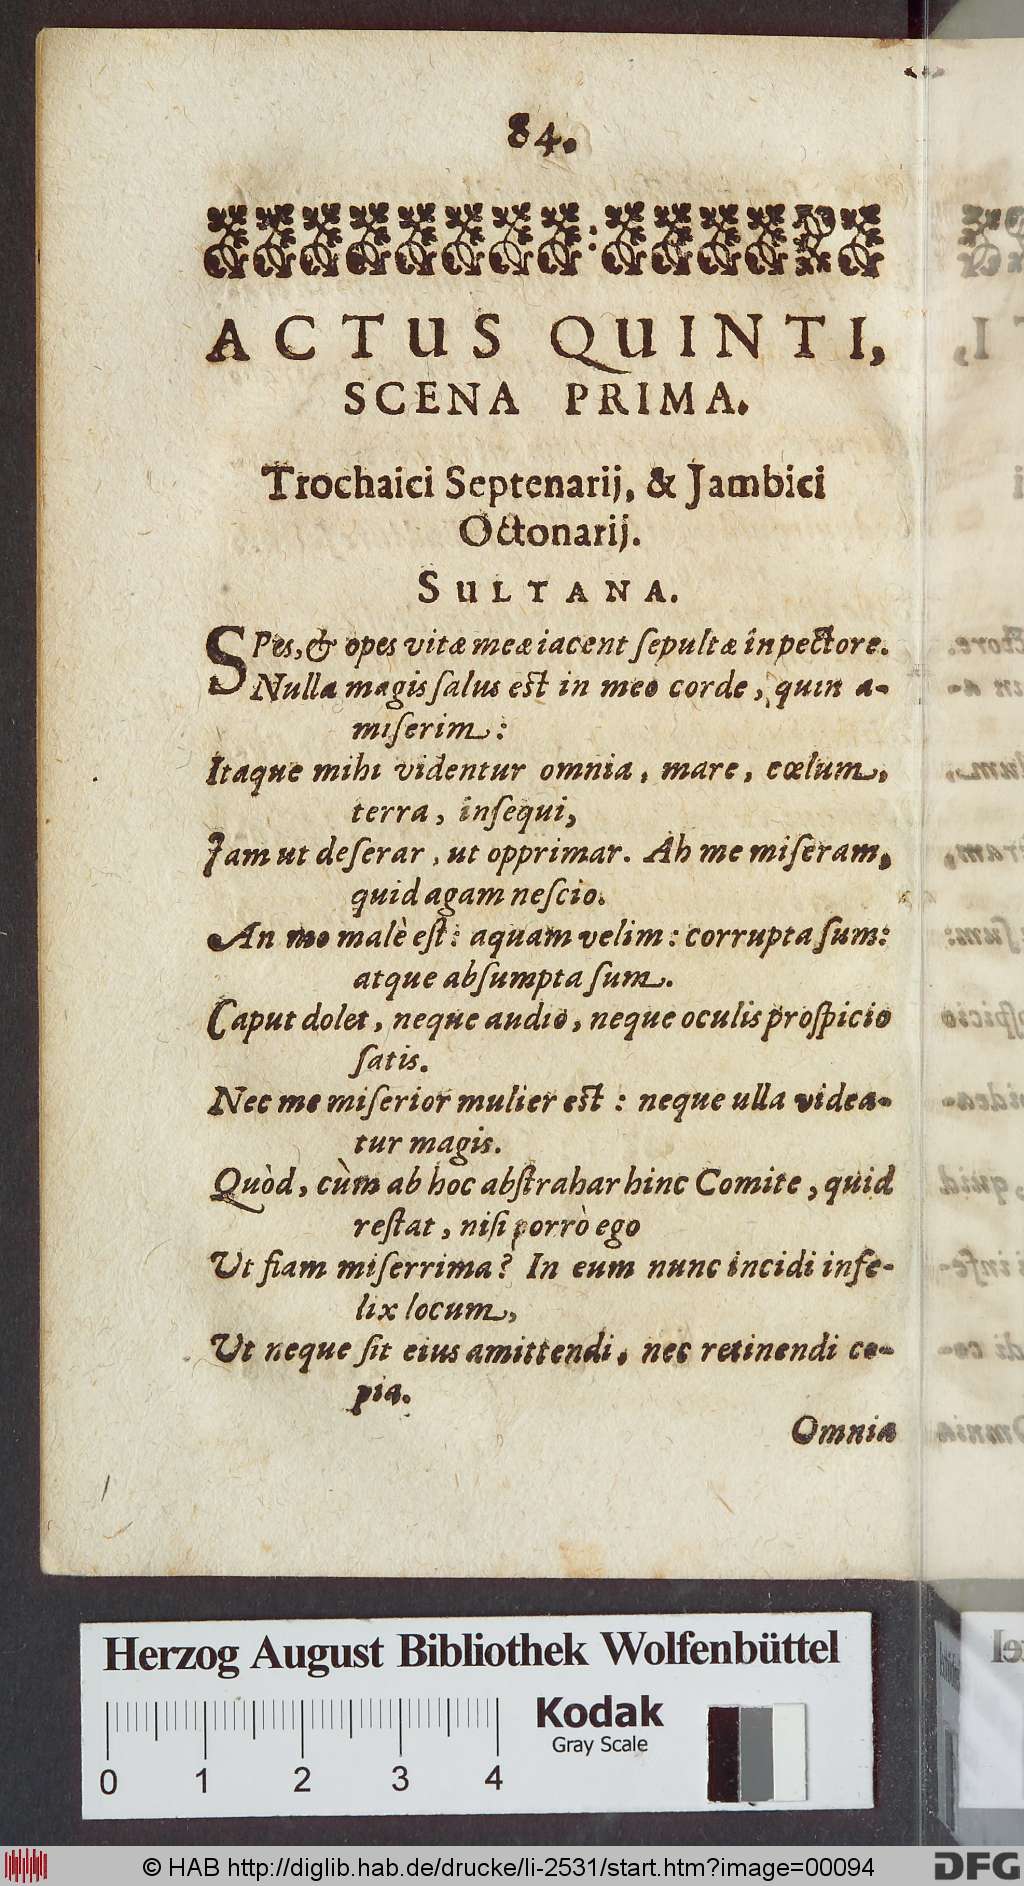 84.
ACTUS QUINTI,
SCENA PRIMA.
Trochaici Septenarij, & Jambici
Octonarij.
SULTANA.
SPes, & opes vitæ meæ iacent ſepultæ in pectore.
Nulla magis ſalus est in meo corde, quin a-
miſerim:
Itaque mihi videntur omnia, mare, cœlum,
terra, inſequi,
Jam ut deſerar, ut opprimar. Ah me miſeram,
quid agam neſcio.
An me malè eſt: aquam velim: corrupta ſum:
atque abſumpta ſum.
Caput dolet, neque audio, neque oculis proſpicio
ſatis.
Nec me miſerior mulier est: neque ulla videa-
tur magis.
Quòd, cùm ab hoc abſtrahar hinc Comite, quid
reſtat, niſi porrò ego
Ut fiam miſerrima? In eum nunc incidi infe-
lix locum,
Ut neque ſit eius amittendi, nec retinendi co-
pia.
Omnia
Herzog August Bibliothek Wolfenbüttel
Kodak
Gray Scale
0 1 2 3 4
© HAB http://diglib.hab.de/drucke/li-2531/start.htm?image=00094
DFG